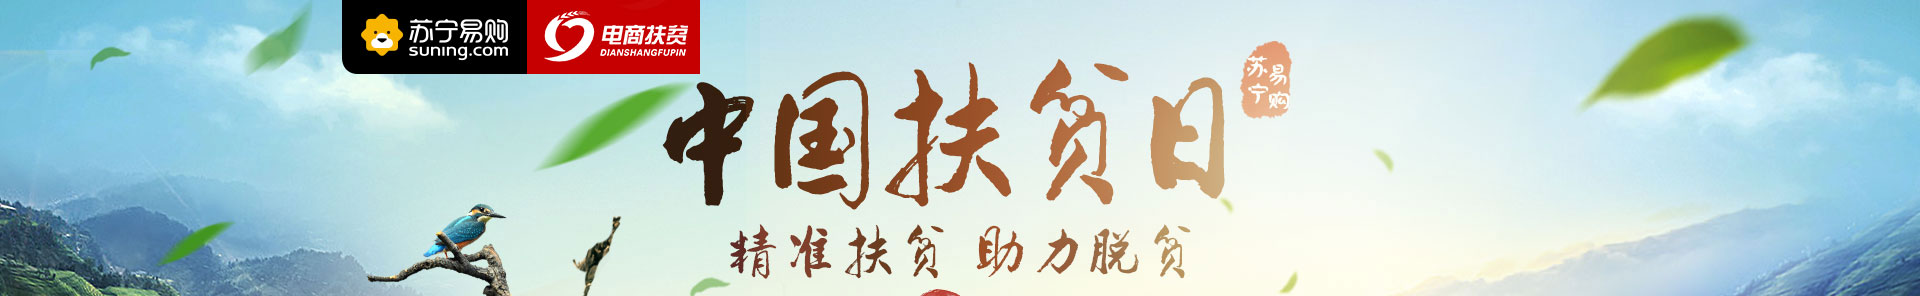 苏宁易购
suning.com
电商扶贫
DIANSHANGFUPIN
中国扶贫日
苏宁易购
精准扶贫 助力脱贫